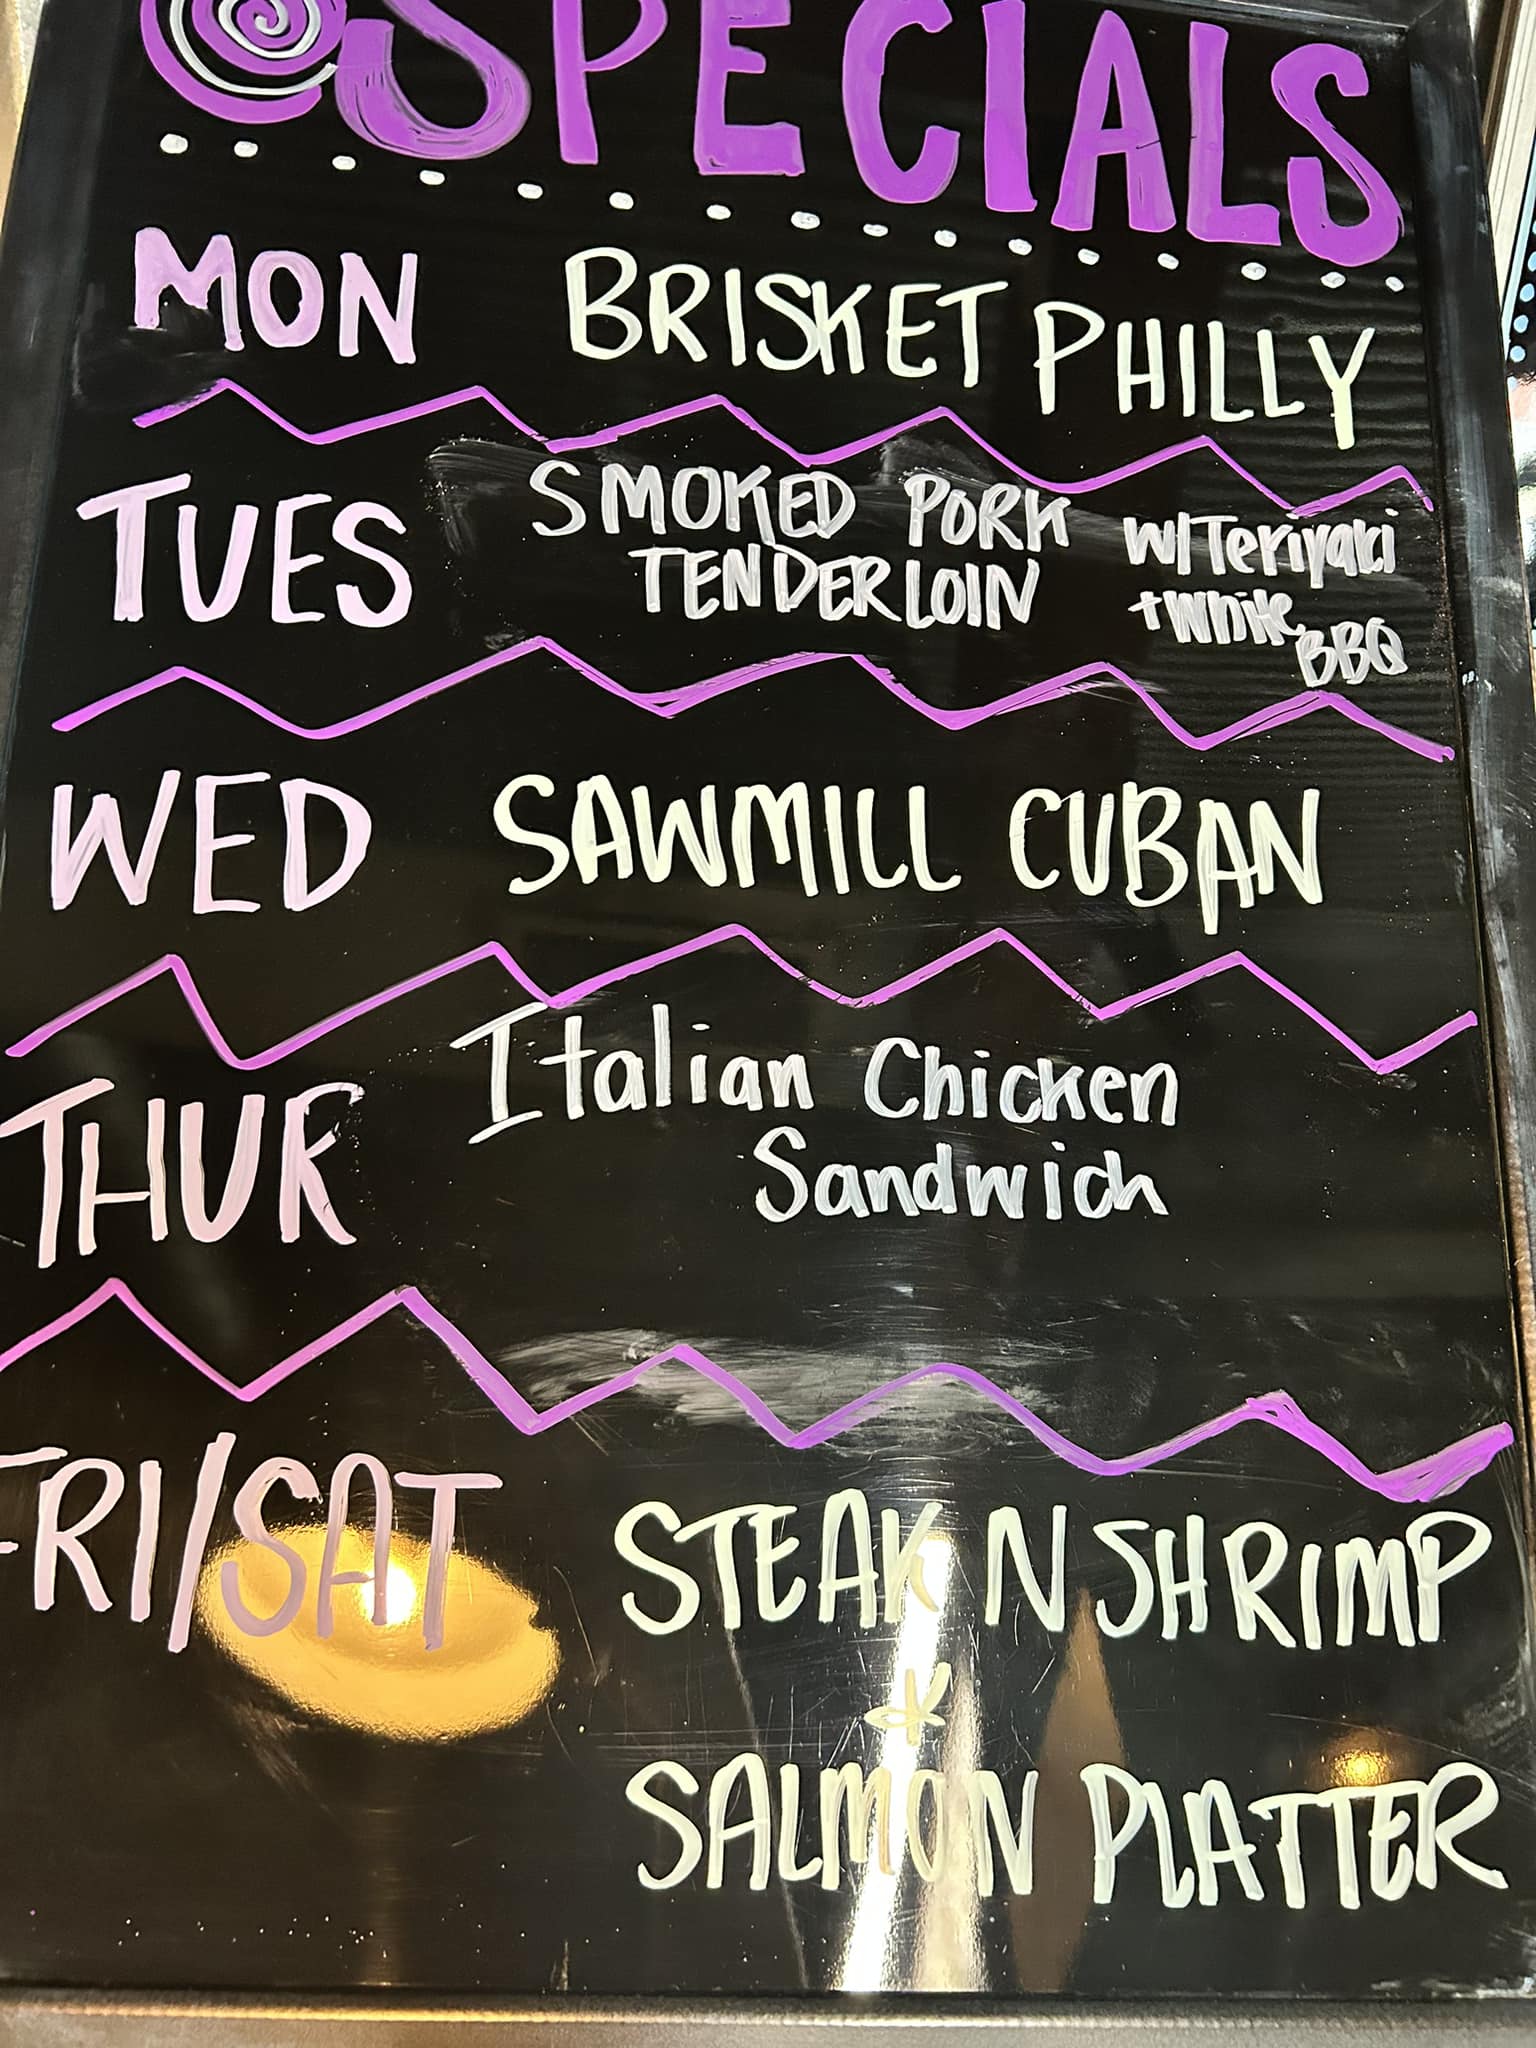 SPECIALS
MON BRISKET PHILLY
TUES SMOKED PORK TENDERLOIN w/Teriyaki + White BBQ
WED SAWMILL CUBAN
THUR Italian Chicken Sandwich
FRI/SAT STEAK N SHRIMP
+
SALMON PLATTER